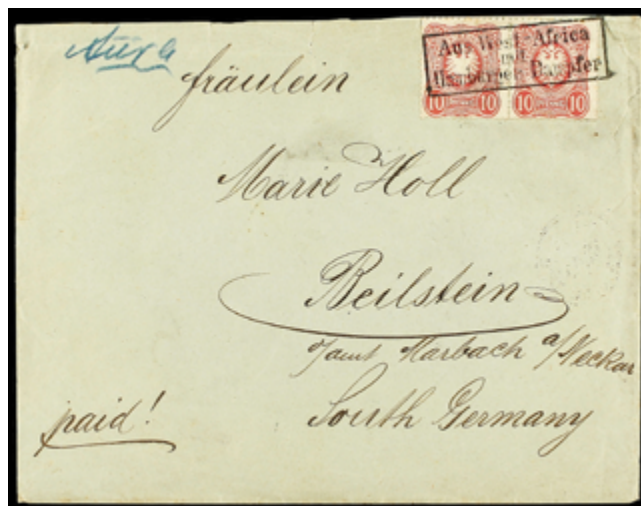 Aus West-Africa
mit
Hamburger Dampfer
10 10 10 10
fräulein
Marie Holl
Beilstein
O/amt Marbach a/Neckar
South Germany
paid!